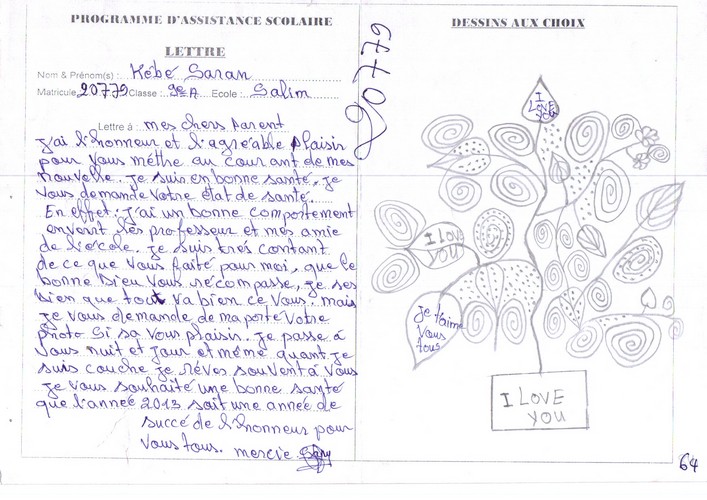 PROGRAMME D'ASSISTANCE SCOLAIRE
LETTRE
Nom & Prénom(s) : Kébé Saran
Matricule 20779 Classe : 9e A Ecole : Salim
Lettre à : mes chers parent
j'ai l'honneur et l'agréable plaisir
pour vous mèthre au courant de mes
nouvelle. je suis en bonne santé. je
vous demande votre état de santé.
En effet. j'ai un bonne comportement
envert les professeur et mes amie
de l'école. je suis trés contant
de ce que vous faité pour moi, que le
bonne Dieu vous récompasse, je ses
bien que tout va bien ce vous. mais
je vous demande de ma porté votre
photo si sa vous plaisir. je passe à
vous nuit et jour et même quant je
suis couche je rêves souvent à vous
je vous souhaité une bonne santé
que l'année 2013 soit une année de
succé de l'honneur pour
vous tous. mercie.
20779
DESSINS AUX CHOIX
I
LOVE
YOU
I LOVE
YOU
je t'aime
vous
tous
I LOVE
YOU
64